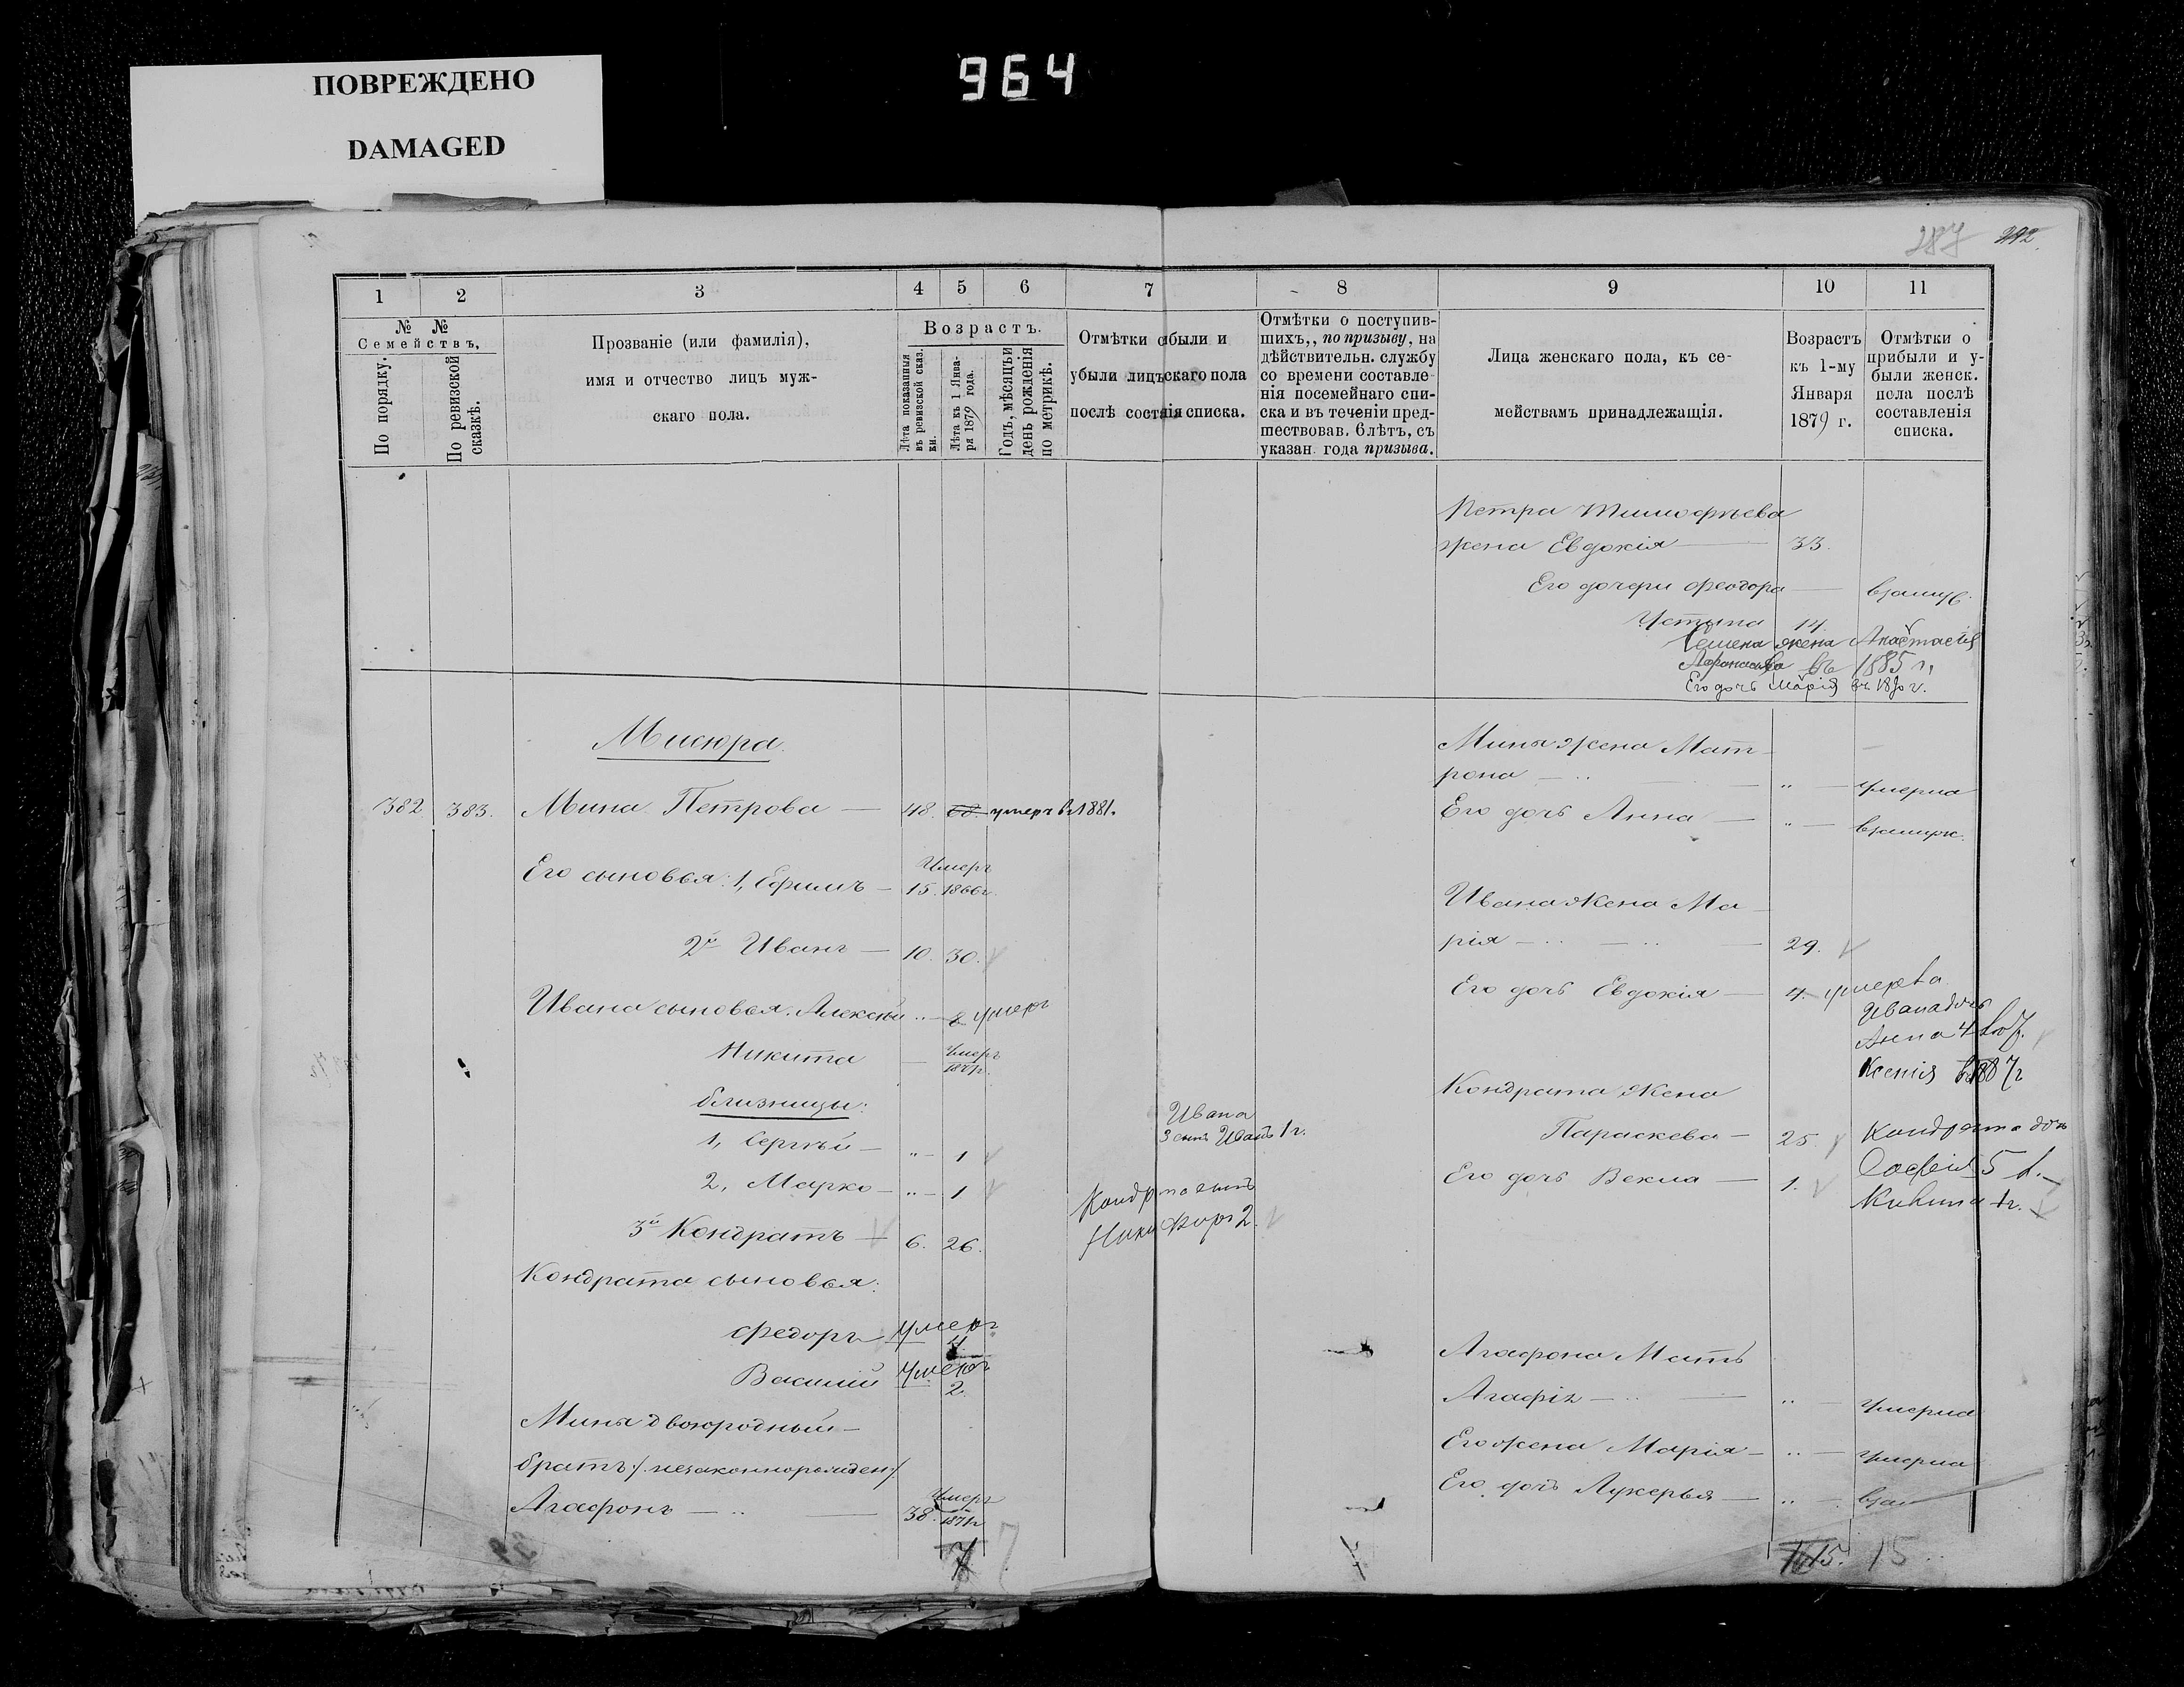 ПОВРЕЖДЕНО
DAMAGED
964
287 292.
1 2 3 4 5 6 7 8 9 10 11
№ № Семействъ,
По порядку.
По ревизской сказкѣ.
Прозваніе (или фамилія),
имя и отчество лицъ муж-
скаго пола.
Возрастъ.
Лѣта показанныя въ ревизской сказ. ки.
Лѣта къ 1 Янва- ря 1879 года.
Годъ, мѣсяцъ и день рожденія по метрикѣ.
Отмѣтки о были и
убыли лицъ скаго пола
послѣ соста ія списка.
Отмѣтки о поступив-
шихъ,, по призыву, на
дѣйствительн. службу
со времени составле-
нія посемейнаго спи-
ска и въ теченіи пред-
шествовав. 6 лѣтъ, съ
указан. года призыва.
Лица женскаго пола, къ се-
мействамъ принадлежащія.
Возрастъ
къ 1-му
Января
1879 г.
Отмѣтки о
прибыли и у-
были женск.
пола послѣ
составленія
списка.
Петра Тимофѣева
жена Евдокія — 33.
Его дочери Феодора — взамуж.
Устина 14.
Семена жена Анастасія
въ 1885 г.
Его дочь Марія
Мисюра.
382 383. Мина Петрова — 48. 68. умеръ въ 1881.
Его сыновья: 1, Ефимъ — 15. Умеръ 1866 г.
2й Иванъ — 10. 30.
Ивана сыновья. Алексѣй умеръ
Никита — Умеръ
близницы:
1, Сергѣй — „ — 1
2, Марко — „ — 1
3й Кондратъ — 6. 26.
Кондрата сыновья:
Федоръ умеръ
Василій умеръ 2.
Мины двоюродный —
братъ /: незаконнорожден :/
Агафонъ — 38. Умеръ 1871 г.
7 7
Ивана
3 сынъ Иванъ 1 г.
Кондрата сынъ
Никифоръ 2.
Мины жена Мат-
рона — „ — умерла
Его дочь Анна — „ — взамуж.
Ивана жена Ма-
рія — 29.
Его дочь Евдокія — 4. умерла
Ивана дочь
Анна 4
Ксенія въ 1887 г
Кондрата жена
Параскева — 25.
Его дочь Векла — 1.
Кондрата дочь
Софія 5 л.
Агафона Мать
Агафія — „ — умерла
Его жена Марія — „ — умерла
Его дочь Лукерья — „ . вза
15. 15